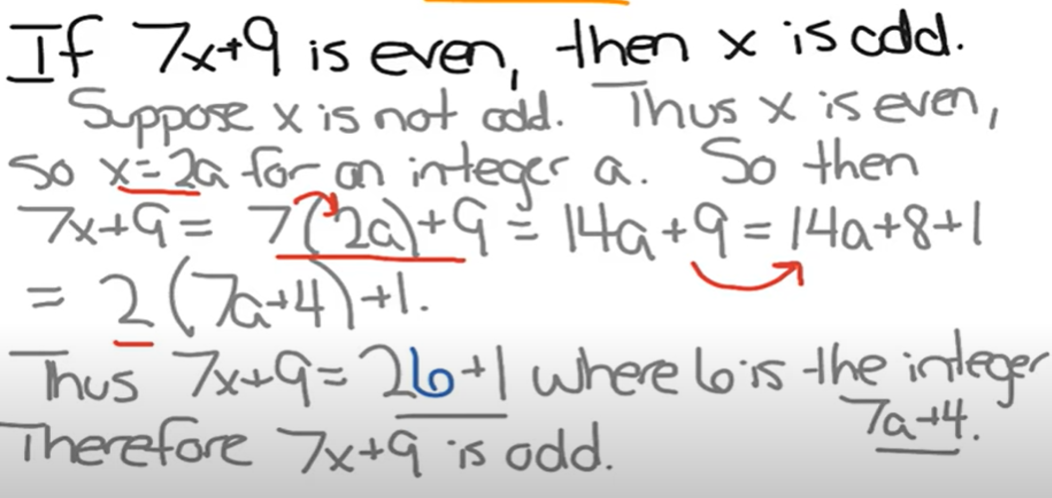 If 7x+9 is even, then x is odd.
Suppose x is not odd. Thus x is even,
so x=2a for an integer a. So then
7x+9= 7(2a)+9 = 14a+9=14a+8+1
= 2(7a+4)+1.
Thus 7x+9=2b+1 where b is the integer
7a+4.
Therefore 7x+9 is odd.